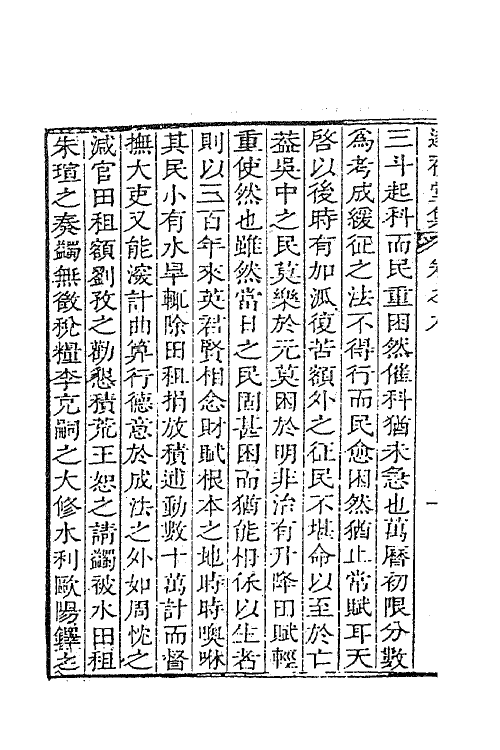 三斗起科而民重困然催科猶未急也萬曆初限分數
爲考成緩征之法不得行而民愈困然猶止常賦耳天
啓以後時有加派復苦額外之征民不堪命以至於亡
葢吳中之民莫樂於元莫困於明非治有升降田賦輕
重使然也雖然當日之民固甚困而猶能相係以生者
則以三百年來英君賢相念財賦根本之地時時噢咻
其民小有水旱輒除田租捐放積逋動數十萬計而督
撫大吏又能濬計曲算行德意於成法之外如周忱之
減官田租額劉孜之勸懇積荒王恕之請蠲被水田租
朱瑄之奏蠲無徵稅糧李克嗣之大修水利歐陽鐸之